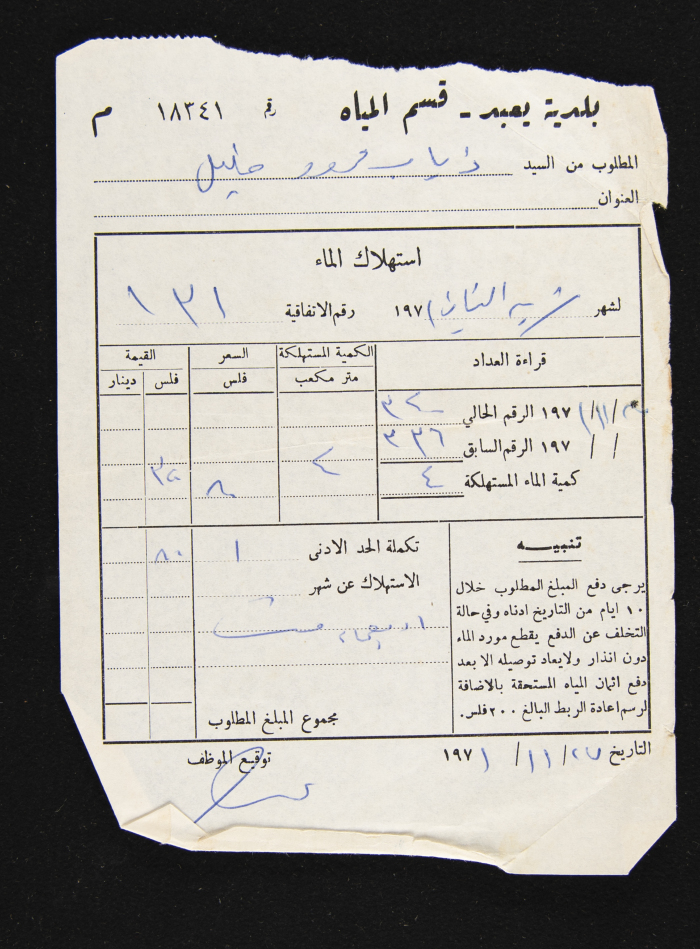 بلدية يعبد - قسم المياه رقم ١٨٣٤١ م
المطلوب من السيد ذياب خليل
العنوان
استهلاك الماء
لشهر تشرين الثاني ١٩٧١ رقم الاتفاقية ١٣١
قراءة العداد الكمية المستهلكة السعر القيمة
متر مكعب فلس فلس دينار
/١١/ ١٩٧١ الرقم الحالي ٣٤٠
/ / ١٩٧ الرقم السابق ٣٣٦
كمية الماء المستهلكة ٤ ٤ ٨٠ ٣٢٠
تنبيه
يرجى دفع المبلغ المطلوب خلال
١٠ ايام من التاريخ ادناه وفي حالة
التخلف عن الدفع يقطع مورد الماء
دون انذار ولا يعاد توصيله الا بعد
دفع اثمان المياه المستحقة بالاضافة
لرسم اعادة الربط البالغ ٢٠٠ فلس.
تكملة الحد الادنى ١ ٨٠
الاستهلاك عن شهر
مجموع المبلغ المطلوب
التاريخ ٢٧/١١/ ١٩٧١
توقيع الموظف